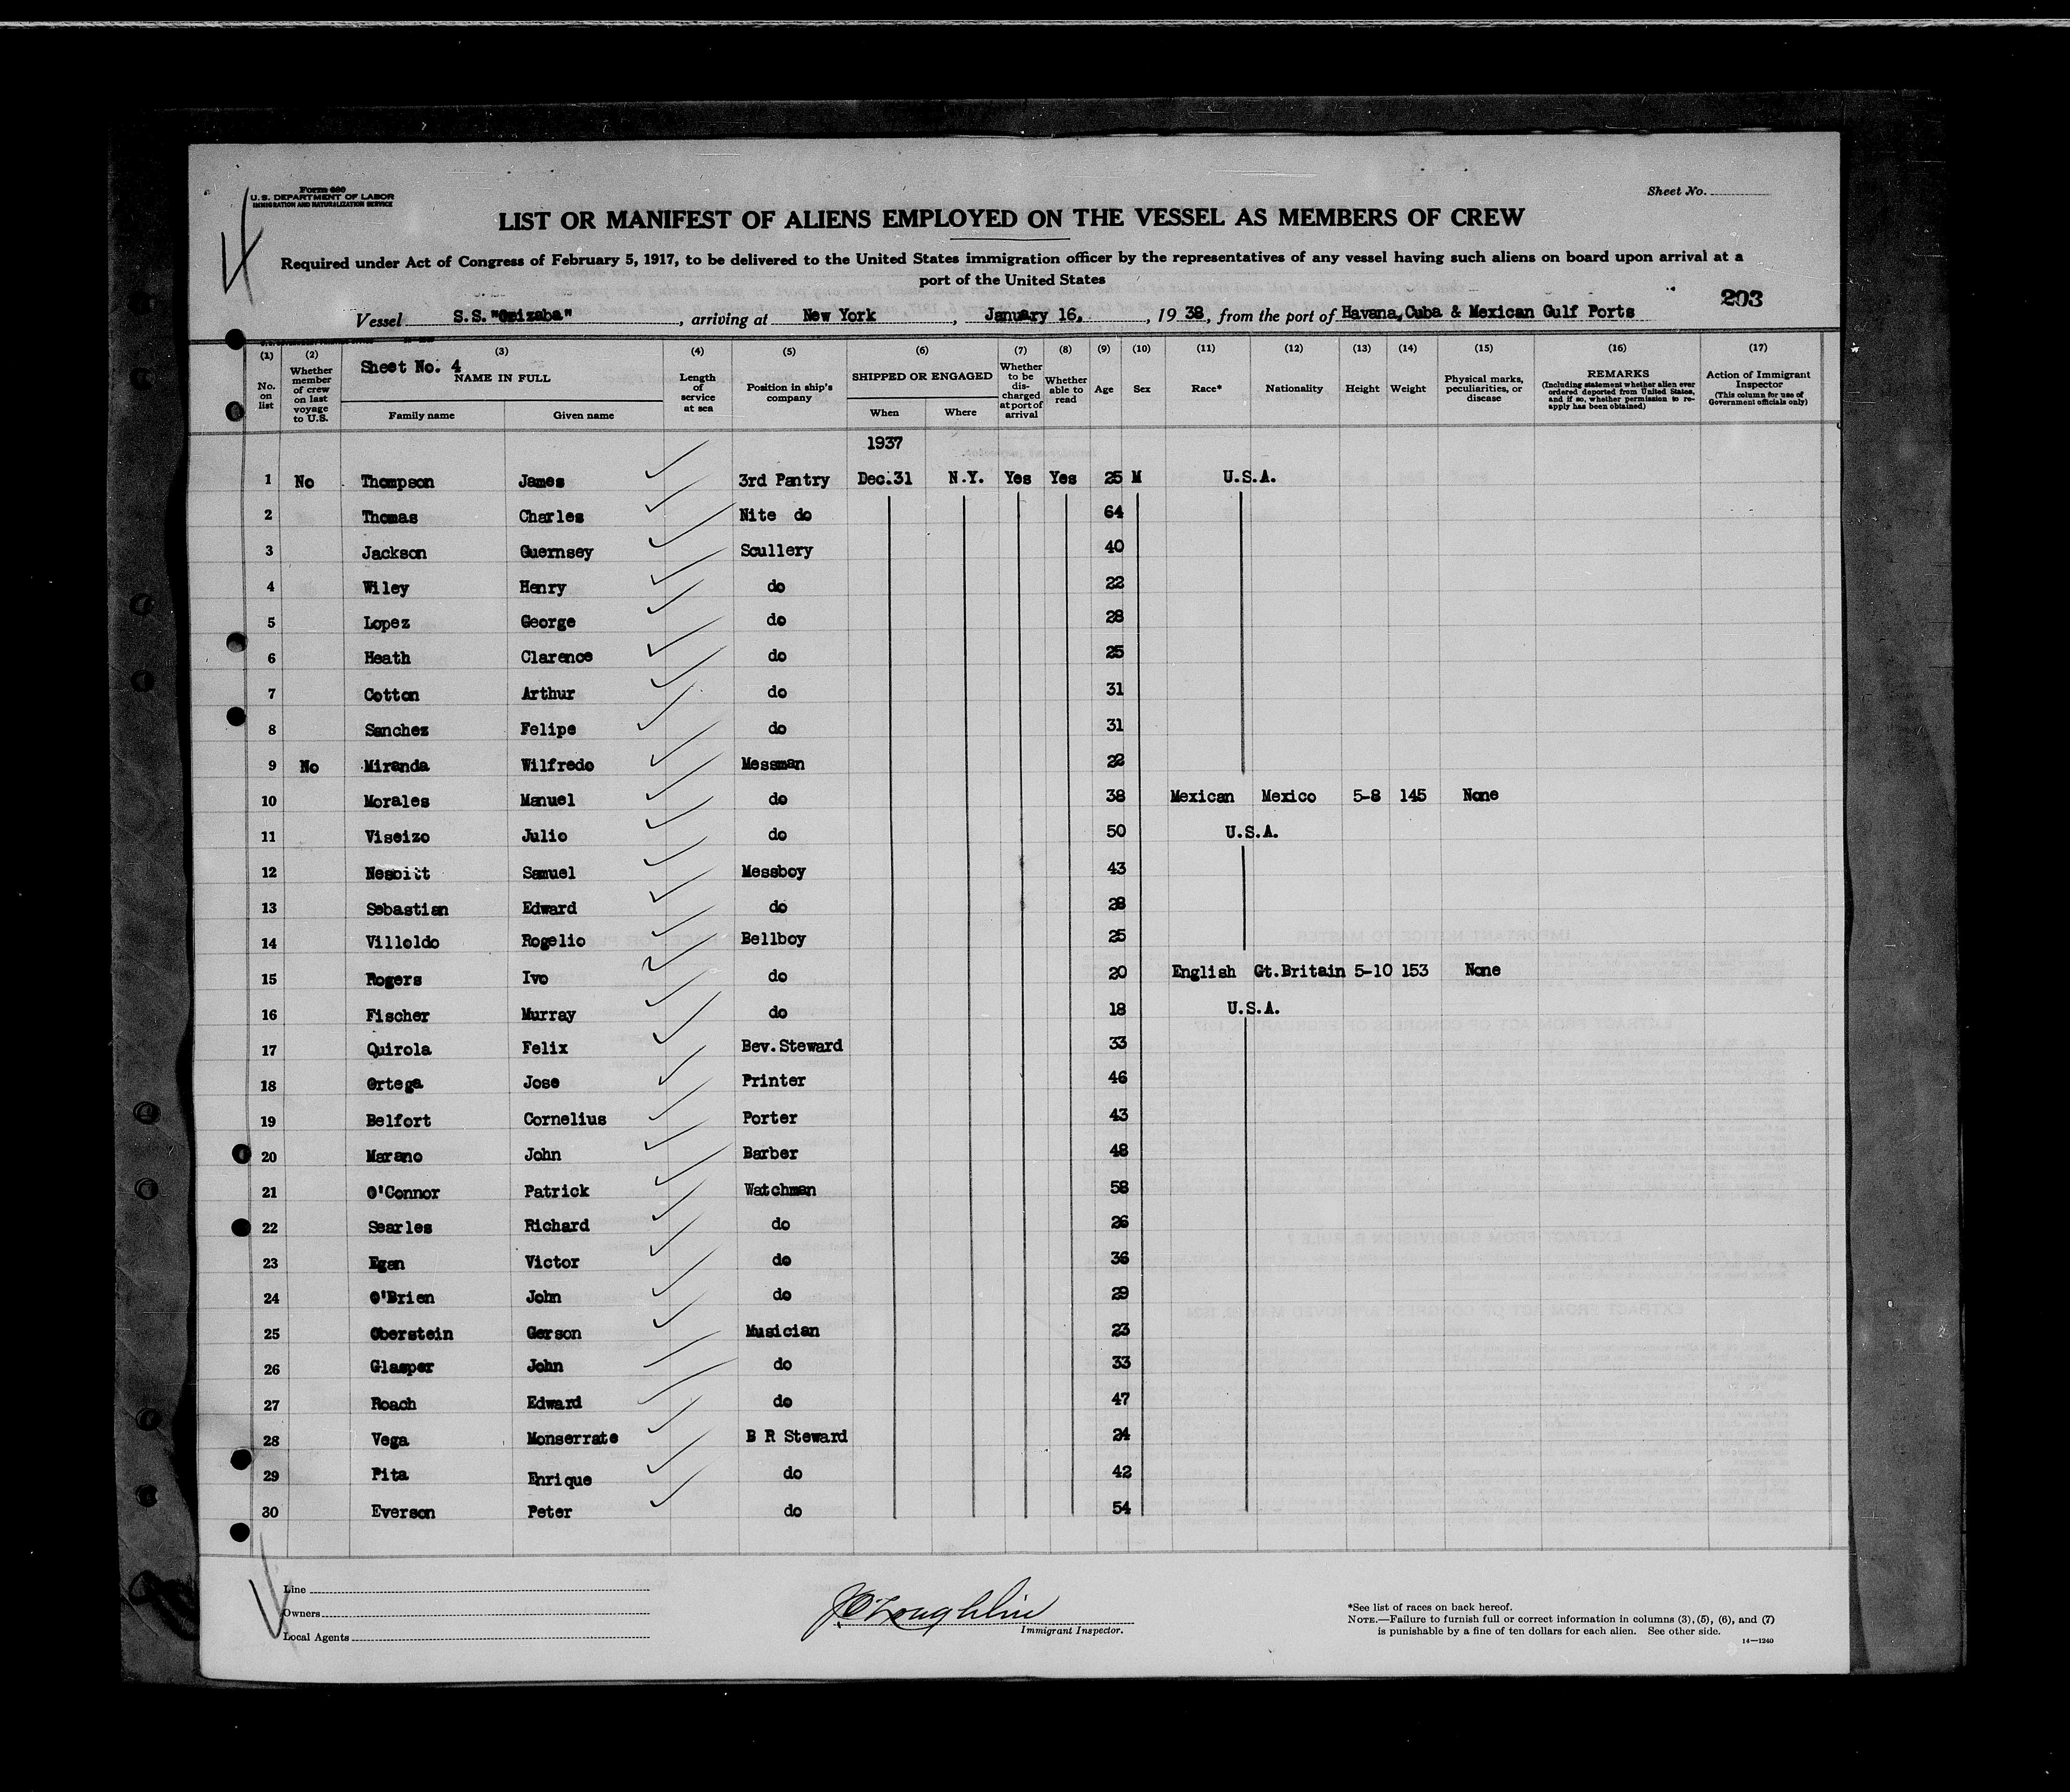 Form 680
U.S. DEPARTMENT OF LABOR
IMMIGRATION AND NATURALIZATION SERVICE
Sheet No.
LIST OR MANIFEST OF ALIENS EMPLOYED ON THE VESSEL AS MEMBERS OF CREW
Required under Act of Congress of February 5, 1917, to be delivered to the United States immigration officer by the representatives of any vessel having such aliens on board upon arrival at a
port of the United States
203
Vessel S.S."Orizaba", arriving at New York, January 16, , 1938, from the port of Havana,Cuba & Mexican Gulf Ports
(1) (2) (3) (4) (5) (6) (7) (8) (9) (10) (11) (12) (13) (14) (15) (16) (17)
No. on list
Whether member of crew on last voyage to U.S.
Sheet No. 4
NAME IN FULL
Family name Given name
Length of service at sea
Position in ship's company
SHIPPED OR ENGAGED
When Where
Whether to be discharged at port of arrival
Whether able to read
Age
Sex
Race*
Nationality
Height
Weight
Physical marks, peculiarities, or disease
REMARKS
(Including statement whether alien ever ordered deported from United States, and if so, whether permission to reapply has been obtained)
Action of Immigrant Inspector
(This column for use of Government officials only)
1937
1 No Thompson James 3rd Pantry Dec.31 N.Y. Yes Yes 25 M U.S.A.
2 Thomas Charles Nite do 64
3 Jackson Guernsey Scullery 40
4 Wiley Henry do 22
5 Lopez George do 28
6 Heath Clarence do 25
7 Cotton Arthur do 31
8 Sanchez Felipe do 31
9 No Miranda Wilfredo Messman 22
10 Morales Manuel do 38 Mexican Mexico 5-8 145 None
11 Viseizo Julio do 50 U.S.A.
12 Nesbitt Samuel Messboy 43
13 Sebastian Edward do 28
14 Villoldo Rogelio Bellboy 25
15 Rogers Ivo do 20 English Gt.Britain 5-10 153 None
16 Fischer Murray do 18 U.S.A.
17 Quirola Felix Bev.Steward 33
18 Ortega Jose Printer 46
19 Belfort Cornelius Porter 43
20 Marano John Barber 48
21 O'Connor Patrick Watchman 58
22 Searles Richard do 26
23 Egan Victor do 36
24 O'Brien John do 29
25 Oberstein Gerson Musician 23
26 Glasper John do 33
27 Roach Edward do 47
28 Vega Monserrate B R Steward 24
29 Pita Enrique do 42
30 Everson Peter do 54
Line
Owners
Local Agents
J O'Loughlin
Immigrant Inspector.
*See list of races on back hereof.
NOTE.—Failure to furnish full or correct information in columns (3), (5), (6), and (7)
is punishable by a fine of ten dollars for each alien. See other side.
14—1240